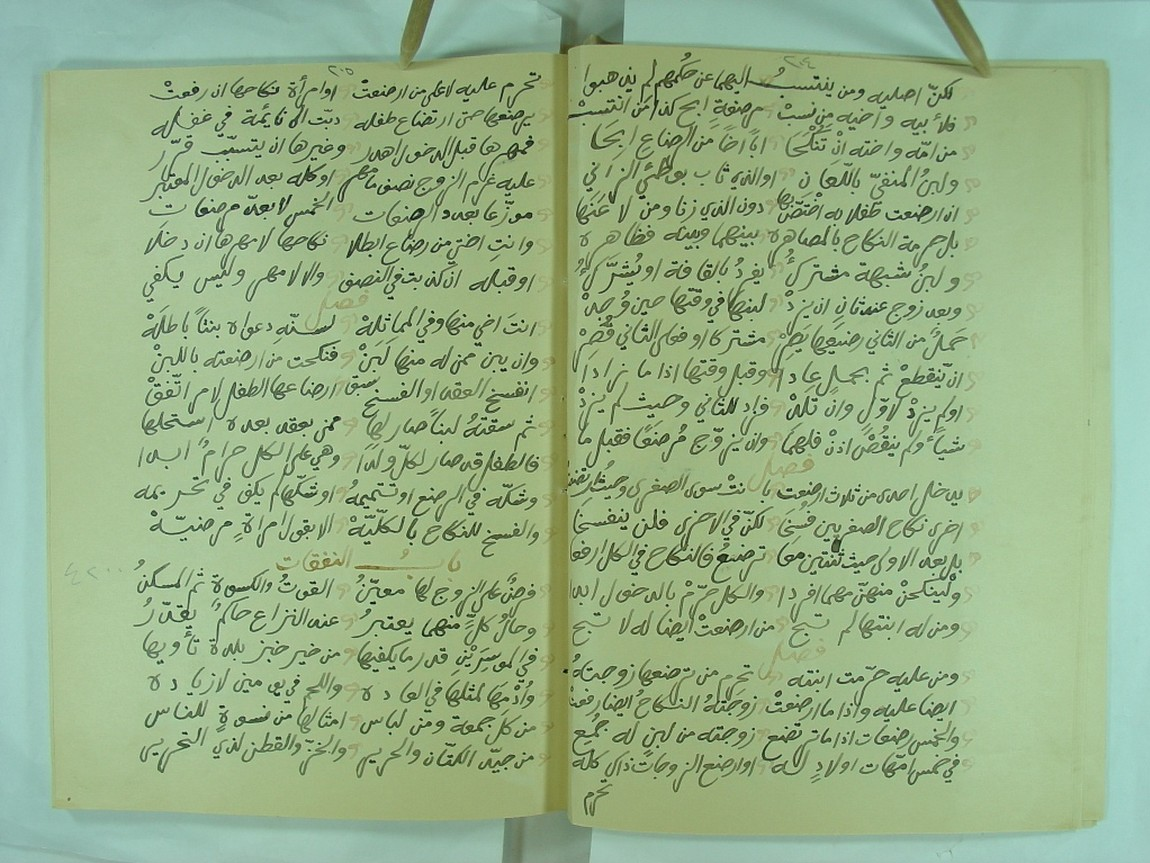 ٢٠٤
لكنّ اصليه ومن ينتسبُ اليهما عن حكمهم لم يذهبوا
فلأبيه واخيه من نسبْ مرضعةٍ ابح كذا من انتسبْ
من امّه واخته انْ تنكحا اباً اخاً من الرضاع ابحا
ولبنُ المنفيّ باللّعان او الذي ثاب بوطئ الزاني
ان ارضعت طفلا به اختصّ بها دون الذي زنا ومن لاعنها
بل حرمة النكاح بالمصاهرة بينهما وبينه فظاهرة
ولبنُ شبهة مشتركُ يفردُ بالقافة او يُشرّكُ
وبعد زوج عند ثانٍ ان يزدْ لبنها في وقتها حين وُجدْ
حملٌ من الثاني رضيعها يصرْ مشتركا او فعلى الثاني قُصرْ
ان ينقطعْ ثم بحملٍ عادا وقبل وقتها اذا ما زادا
او لم يزدْ لاوّلٍ وان تلدْ فزاد للثاني وحيث لم يزدْ
شيأً ولم ينقصْ اذنْ فلهما وان يزوّج مُرضَعًا فقبل ما
فصل
يدخل احدى من ثلاث ارضعت بانتْ سوى الصغرى وحيث ارضعت
اخرى نكاح الصغريين فُسخا لكنّ في الاخرى فلن ينفسخا
بل بعد الاولى حيث ثنتين معًا ترضعُ فالنكاح في الكل ارفعا
ولْينكحنْ منهنّ مهما افردا والكل حرّمْ بالدخول ابدا
ومن له ابنتها لم تبح من ارضعتْ ايضا له لا تبح
فصل
ومن عليه حرّمت ابنته تحرم من ترضعها زوجته
ايضا عليه واذا ما ارضعتْ زوجتهُ النكاح ايضا رفعتْ
والخمس رضعات اذا ما ترضع زوجته من لبن له جُمِع
في خمس امّهات اولادٍ له او ارضع الزوجات ذاك كله
تحرم
٢٠٥
تحرم عليه لا على من ارضعتْ او امرأة نكاحها ان رفعتْ
برضعها من ارتضاع طفله دبّت الى نائمة في غفله
فمهرها قبل الدخول اهدر وغيرها ان يتسبّبْ قرّر
عليه غرم الزوج نصف مهرهم او كله بعد الدخول المعتبر
موزّعا بعدد الرضعات الخمس لا بعدّ مرضعات
وانتِ اختي من رضاع ابطلا نكاحها لا مهرها ان دخلا
او قبله ان كذبت في النصف والا لا مهر وليس يكفي
فصل
انتَ اخي منها وفي المماثلهْ لسنّه دعواه بنتًا باطلهْ
وان يبن ممن له منها لَبَنْ فنكحت من ارضعته باللبنْ
انفسخ العقد او الفسخ سبق ارضاعها الطفل لامر اتّفقْ
ثم سقتهُ لبناً صار لها ممن بعقد بعده استحلها
فالطفل قد صار لكلّ ولدا وهي على الكل حرامٌ ابدا
وشكّه في الرضع او تتميمهْ او شكّهم لم يكف في تحريمه
والفسخ للنكاح بالكلّيّهْ الا بقول امرأةٍ مرضيّهْ
بابُ النفقات
فرضٌ على الزوج لها معيّنُ القوتُ والكسوة ثم المسكنُ
وحالُ كلٍّ منهما يعتبرُ عند النزاع حاكمٌ يقدّرُ
في الموسرَيْن قدر ما يكفيها من خير خبز بلدة تأويها
وأُدْمَها لمثلها في العادة واللحم في يومين لا زيادة
من كل جمعة ومن لباس امثالها من نسوةٍ للناس
من جيّد الكتّان والحرير والخزّ والقطن لذي التحرير